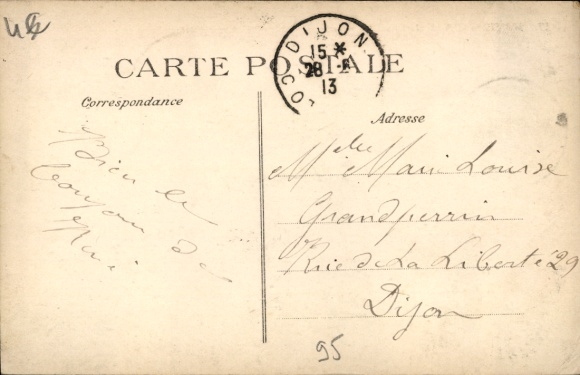 CARTE POSTALE
DIJON
15 *
28 -
13
Correspondance
Adresse
Bien le
de
Melle Marie Louise
Grandperrin
Rue de La Liberté 29
Dijon
95